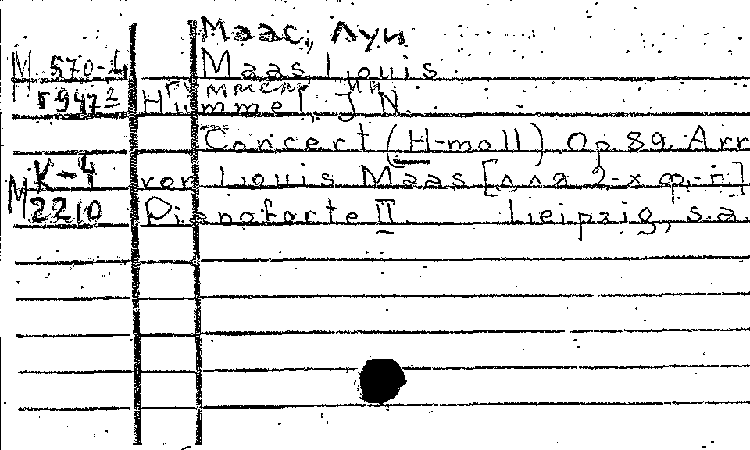 Маас, Луи
М 570-4 Maas Louis.
Гуммель И Н
г 947² Hummel, J. N.
Concert (H-moll) Op. 89. Arr
К-4 von Louis Maas [для 2-х ф.-п.]
М 2210 Pianoforte II. Leipzig, s.a.